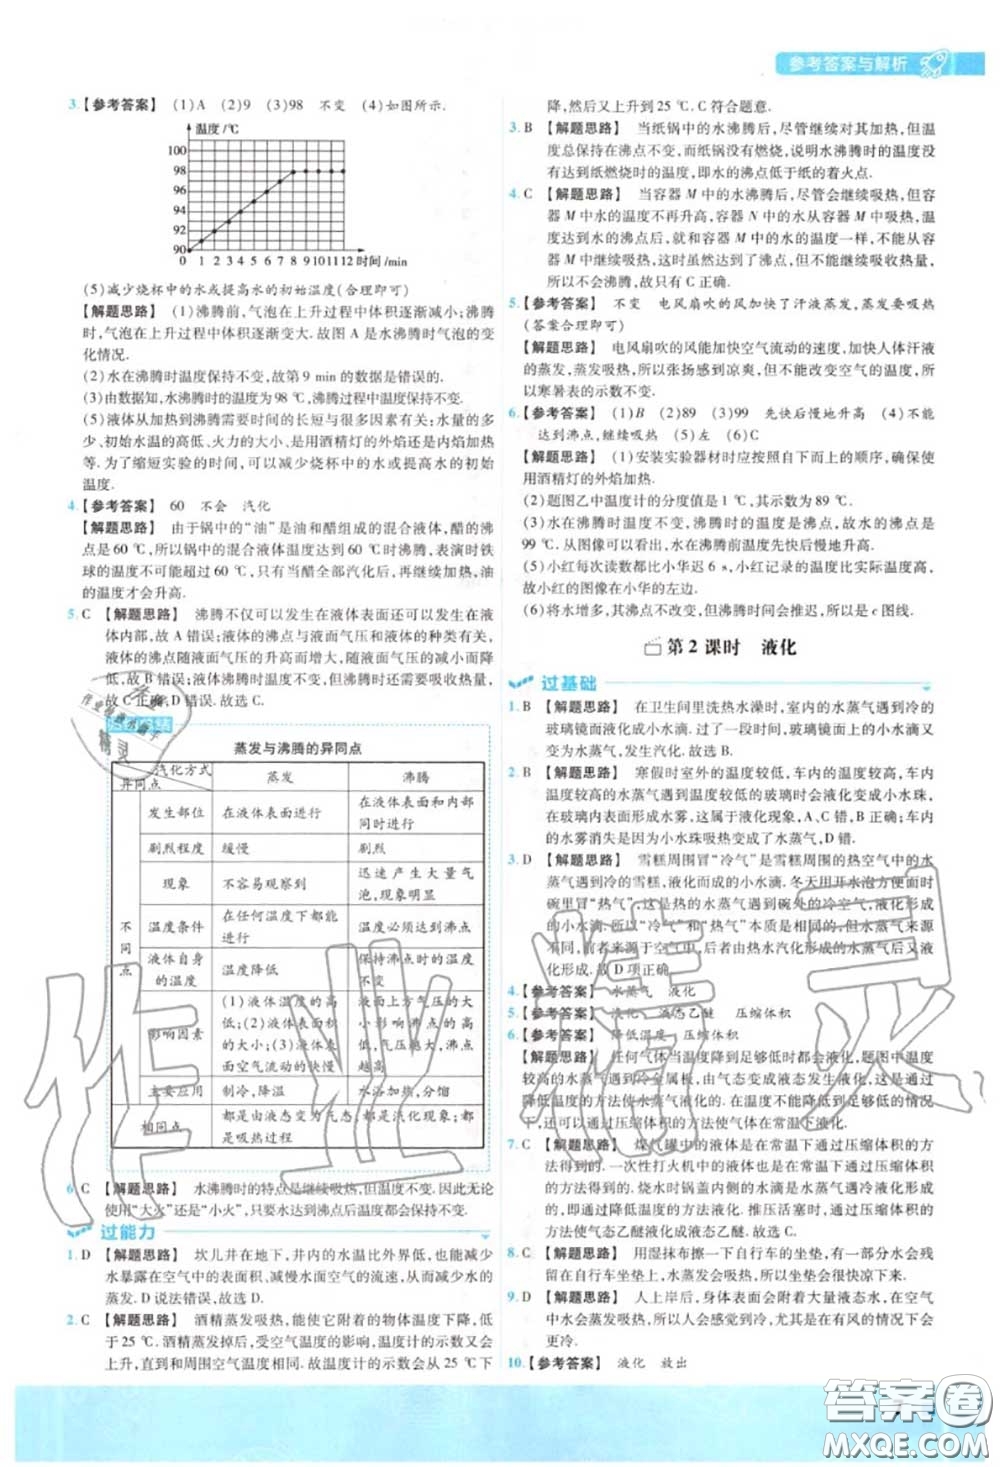 参考答案与解析
3.【参考答案】 (1)A (2)9 (3)98 不变 (4)如图所示.
温度/℃
100
98
96
94
92
90
0 1 2 3 4 5 6 7 8 9 10 11 12 时间/min
(5)减少烧杯中的水或提高水的初始温度(合理即可)
【解题思路】 (1)沸腾前,气泡在上升过程中体积逐渐减小;沸腾
时,气泡在上升过程中体积逐渐变大.故图 A 是水沸腾时气泡的变
化情况.
(2)水在沸腾时温度保持不变,故第 9 min 的数据是错误的.
(3)由数据知,水沸腾时的温度为 98 ℃,沸腾过程中温度保持不变.
(5)液体从加热到沸腾需要时间的长短与很多因素有关:水量的多
少、初始水温的高低、火力的大小、是用酒精灯的外焰还是内焰加热
等.为了缩短实验的时间,可以减少烧杯中的水或提高水的初始
温度.
4.【参考答案】 60 不会 汽化
【解题思路】 由于锅中的“油”是油和醋组成的混合液体,醋的沸
点是 60 ℃,所以锅中的混合液体温度达到 60 ℃时沸腾,表演时铁
球的温度不可能超过 60 ℃,只有当醋全部汽化后,再继续加热,油
的温度才会升高.
5. C 【解题思路】 沸腾不仅可以发生在液体表面还可以发生在液
体内部,故 A 错误;液体的沸点与液面气压和液体的种类有关;
液体的沸点随液面气压的升高而增大,随液面气压的减小而降
低,故 C 正确,D 错误.故选 C.
蒸发与沸腾的异同点
汽化方式 异同点 蒸发 沸腾
不同点
发生部位 在液体表面进行 在液体表面和内部同时进行
剧烈程度 缓慢 剧烈
现象 不容易观察到 迅速产生大量气泡,现象明显
温度条件 在任何温度下都能进行 温度必须达到沸点
液体自身的温度 温度降低 保持沸点时的温度不变
影响因素 (1)液体温度的高低;(2)液体表面积的大小;(3)液体表面空气流动的快慢 液面上方气压的大小影响沸点的高低,气压越大,沸点越高
主要应用 制冷,降温 水浴加热,分馏
相同点 都是由液态变为气态,都是汽化现象;都是吸热过程
6. C 【解题思路】 水沸腾时的特点是继续吸热,但温度不变.因此无论
使用“大火”还是“小火”,只要水达到沸点后温度都会保持不变.
过能力
1. D 【解题思路】 坎儿井在地下,井内的水温比外界低,也能减少
水暴露在空气中的表面积、减慢水面空气的流速,从而减少水的
蒸发.D 说法错误,故选 D.
2. C 【解题思路】 酒精蒸发吸热,能使它附着的物体温度下降,低
于 25 ℃.酒精蒸发掉后,受空气温度的影响,温度计的示数又会
上升,直到和周围空气温度相同.故温度计的示数会从 25 ℃下
降,然后又上升到 25 ℃.C 符合题意.
3. B 【解题思路】 当纸锅中的水沸腾后,尽管继续对其加热,但温
度总保持在沸点不变,而纸锅没有燃烧,说明水沸腾时的温度没有
达到纸燃烧时的温度,即水的沸点低于纸的着火点.
4. C 【解题思路】 当容器 M 中的水沸腾后,尽管会继续吸热,但容
器 M 中水的温度不再升高,容器 N 中的水从容器 M 中吸热,当
温度达到水的沸点后,就和容器 M 中的水的温度一样,不能从
容器 M 中继续吸热,这时虽然达到了沸点,但不能吸收热量,
所以不会沸腾.故只有 C 正确.
5.【参考答案】 不变 电风扇吹的风加快了汗液蒸发,蒸发要吸热
(答案合理即可)
【解题思路】 电风扇吹的风能加快空气流动的速度,加快人体汗液
的蒸发,蒸发吸热,所以张扬感到凉爽,但不能改变空气的温度,所
以寒暑表的示数不变.
6.【参考答案】 (1)B (2)89 (3)99 先快后慢地升高 (4)不能
达到沸点,继续吸热 (5)左 (6)C
【解题思路】 (1)安装实验器材时应按照自下而上的顺序,确保使
用酒精灯的外焰加热.
(2)题图乙中温度计的分度值是 1 ℃,其示数为 89 ℃.
(3)水在沸腾时温度保持不变,此时的温度是沸点,故水的沸点是
99 ℃.从图像可以看出,水在沸腾前温度先快后慢地升高.
(5)小红每次读数都比小华迟 6 s,小红记录的温度比实际温度高,
故小红的图像在小华的左边.
(6)将水增多,其沸点不改变,但沸腾时间会推迟,所以是 c 图线.
第 2 课时 液化
过基础
1. B 【解题思路】 在卫生间里洗热水澡时,室内的水蒸气遇到冷的
玻璃镜面液化成小水滴;过了一段时间,玻璃镜面上的小水滴又
变为水蒸气,发生了汽化.故选 B.
2. B 【解题思路】 寒假时室外的温度较低,车内温度较高,车内
温度较高的水蒸气遇到温度较低的玻璃时会液化成小水珠,
在玻璃内表面形成水雾,这属于液化现象,A、C 错,B 正确;车内的
的水雾消失是因为小水珠吸热变成了水蒸气,D 错.
3. D 【解题思路】 雪糕周围冒“冷气”是雪糕周围的热空气中的水
蒸气遇到冷的雪糕,液化而成的小水滴.冬天用开水泡方便面时
碗里冒“热气”,是热的水蒸气遇到碗外的冷空气,液化而成
的小水滴.所以“冷气”和“热气”本质是相同的.但水蒸气来源
不同,前者来源于空气中,后者由热水汽化形成的水蒸气后又液
化形成.故 D 项正确.
4.【参考答案】 水蒸气 液化
5.【参考答案】 液化 液态乙醚 压缩体积
6.【参考答案】 降低温度 压缩体积
【解题思路】 任何气体当温度降到足够低时都会液化,题图中温度
较高的水蒸气遇到冷金属板,由气态变成液态发生液化,这是通过
降低温度的方法使水蒸气液化的.在温度不能降到足够低的情况
下,还可以通过压缩体积的方法使气体在常温下液化.
7. C 【解题思路】 煤气罐中的液体是在常温下通过压缩体积的方
法得到的.一次性打火机中的液体是在常温下通过压缩体积
的方法得到的.烧水时锅盖内侧的水滴是水蒸气遇冷液化得到
的,即通过降低温度的方法得到的.推压活塞时,通过压缩体积的
方法使气态乙醚液化成液态乙醚.故选 C.
8. C 【解题思路】 用湿抹布擦一下自行车的坐垫,有一部分水会残
留在自行车坐垫上,水蒸发吸热,使坐垫温度降低.
9. D 【解题思路】 人上岸后,身体表面会附着大量液态水,在空气
中水会蒸发吸热,使人体感到冷,尤其是在有风的情况下会
更冷.
10.【参考答案】 液化 放出
作业精灵
答案圈
MXQE.COM